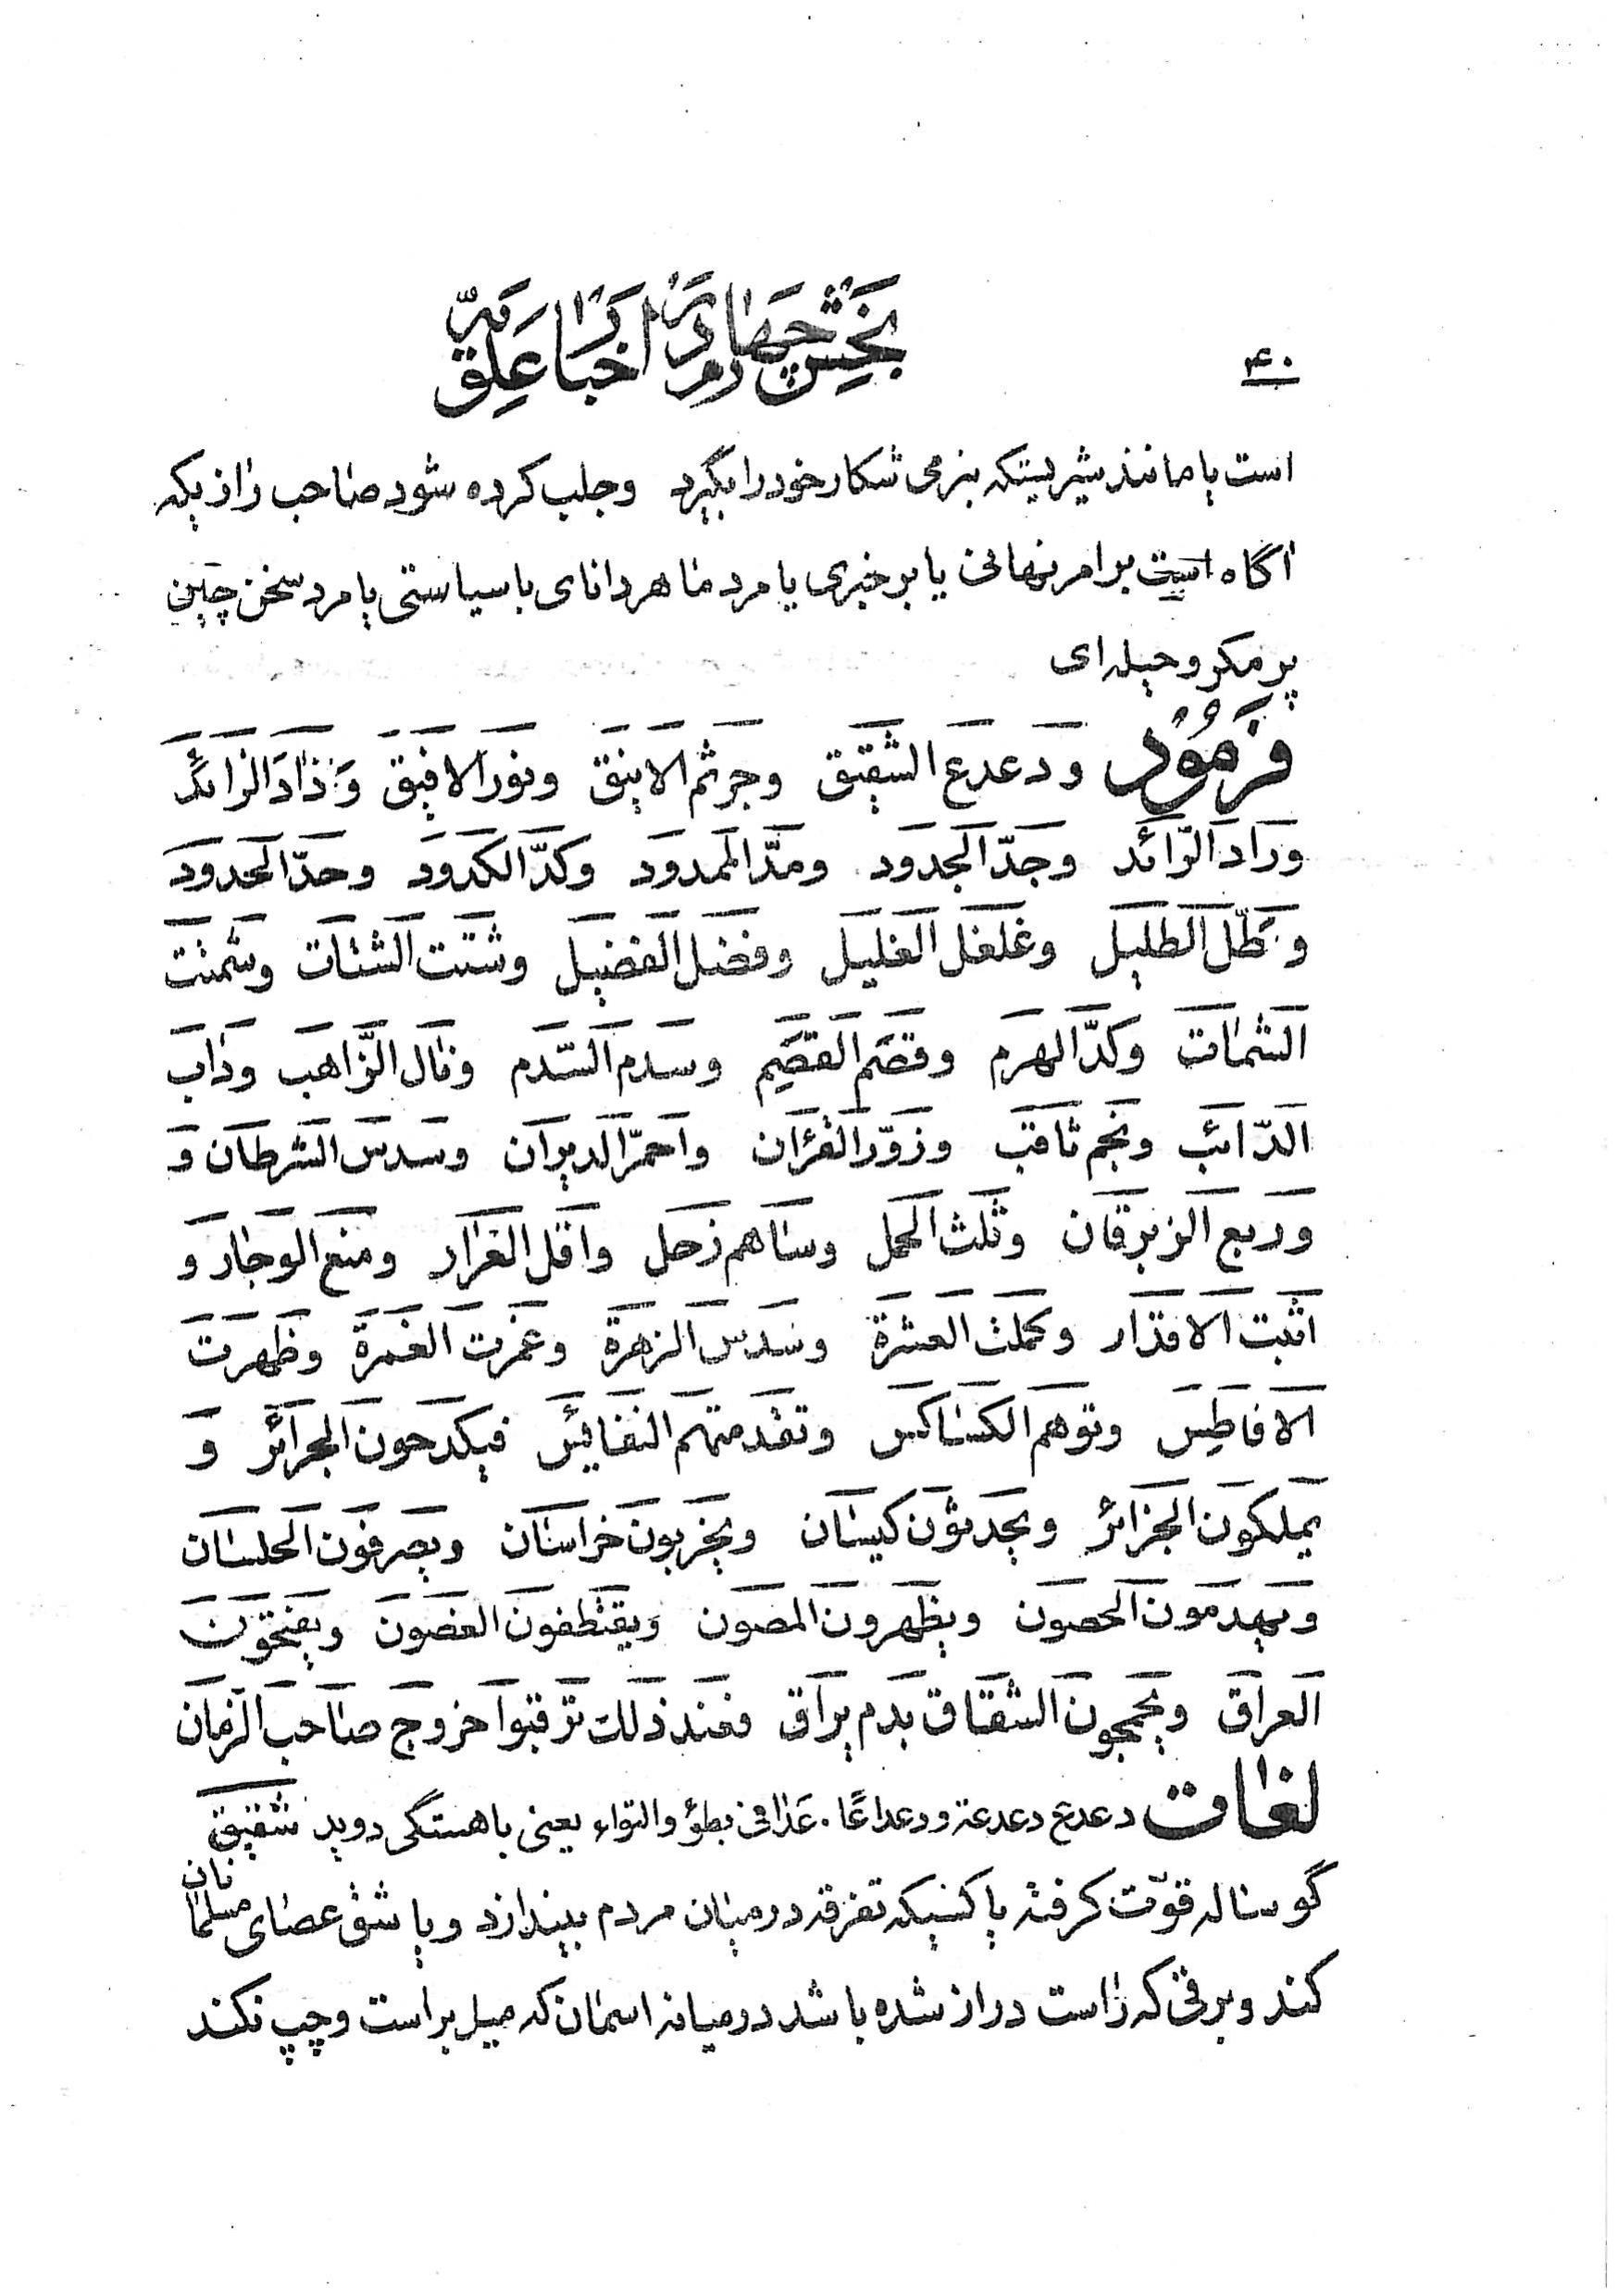 ۴۰
بخش چهارم در اخبار علویّه
است یا مانند شیریستکه بنرمی شکار خود را بگیرد و جلب کرده شود صاحب رازیکه
آگاه است برامر نهانی یا برخبری یا مرد ماهر دانای با سیاستی یا مرد سخن چین
پرمکر و حیله ای
فرمود ودعدع الشقیق وجرثم الانیق ونور الافیق وذاد الزائد
وراد الرّائد وجدّ الجدود ومدّ الممدود وکدّ الکدود وحدّ الحدود
وطلّ الطلیل وغلغل الغلیل وفضل الفضیل وشتت الشتات وشمتت
الشمات وکدّ الهرم وقصم القصیم وسدم السّدم ونال الزّاهب وذاب
الذّائب ونجم ثاقب وزوّر القرٔان واحمرّ الدبران وسدس الشرطان و
وربع الزبرقان وثلث الحمل وساهم زحل واقل الغرار ومنع الوجار و
اثبت الاقدار وکملت العشرة وسدس الزهرة وغمرت الغمرة وظهرت
الافاطس وتوهم الکساکس وتقدمتهم النفایس فیکدحون الجرائر و
یملکون الجزائر ویحدثون کیسان ویخربون خراسان ویصرفون الحلسان
ویهدمون الحصون ویظهرون المصون ویقتطفون الغصون ویفتحون
العراق ویحمجون الشقاق بدم یراق فعند ذلک ترقبوا خروج صاحب الزمان
لغات دعدع دعدعة ودعداعًا. عَدا فی بطؤ والتواء یعنی باهستگی دوید شقیق
گوساله قوّت گرفته یا کسیکه تفرقه درمیان مردم بیندازد و یا شق عصای مسلمانان
کند و برقی که راست دراز شده باشد درمیانه اسمان که میل براست و چپ نکند